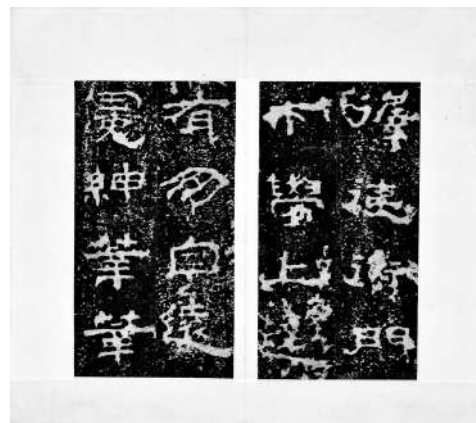 衡門
下學上達
有朋自遠
冕紳莘莘